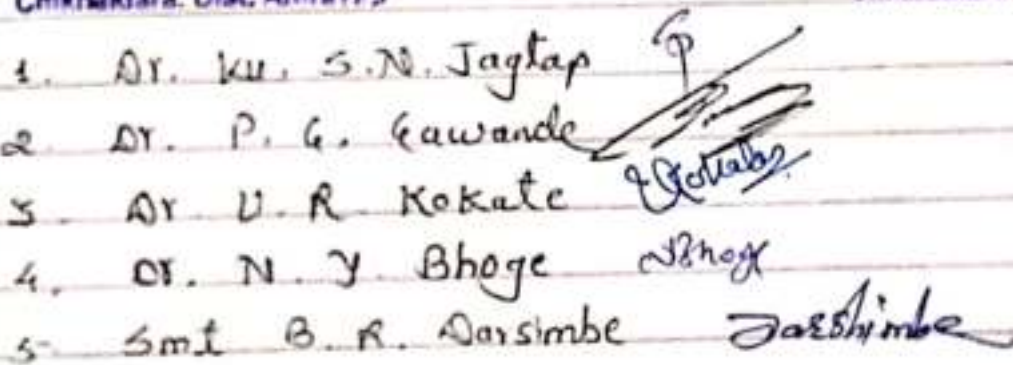 1. Dr. Ku. S.N. Jagtap
2 Dr. P. G. Gawande
3. Dr U. R Kokate Kokate
4. Dr. N. Y Bhoge Bhoge
5 Smt B. R. Darsimbe Darshimbe